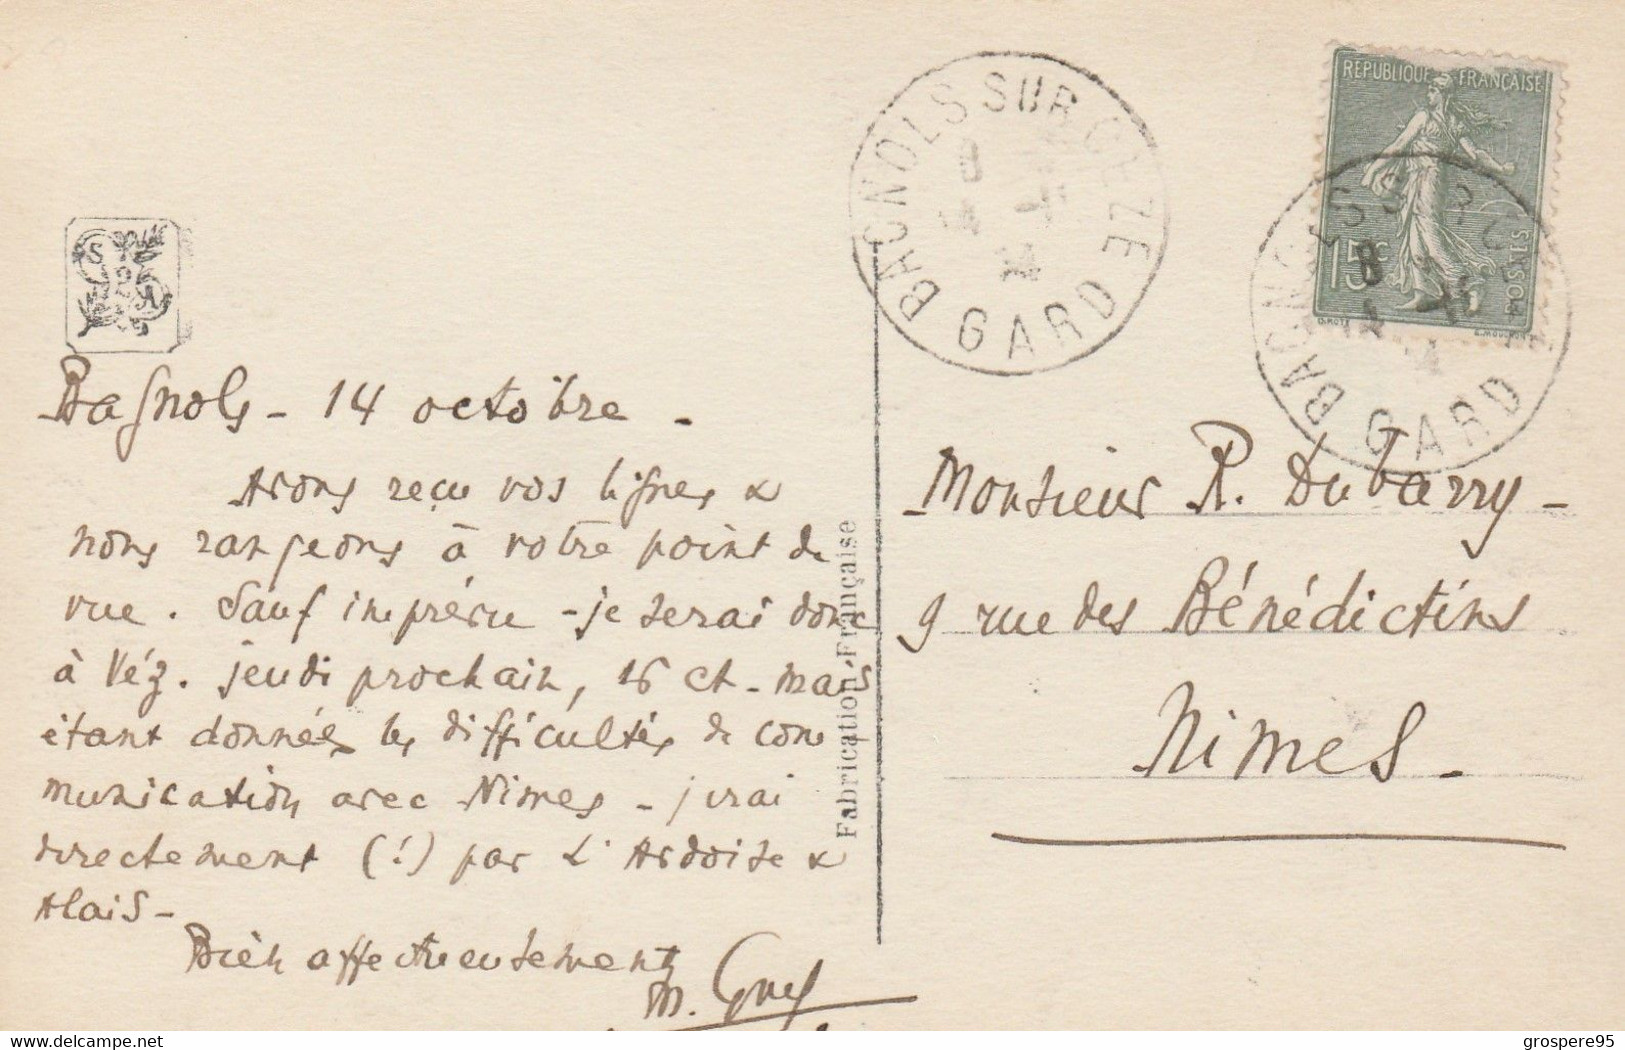 BAGNOLS SUR CEZE
GARD
RÉPUBLIQUE FRANÇAISE
15c
POSTES
Bagnols - 14 octobre -
Avons reçu vos lignes &
nous rangeons à votre point de
vue. Sauf imprévu - je serai donc
à Véz. jeudi prochain, 16 ct - mais
étant données les difficultés de com
munication avec Nimes - j'irai
directement (!) par L'Ardoise &
Alais -
Bien affectueusement
M.
Fabrication Française
Monsieur R. Dubarry -
9 rue des Bénédictins
Nimes -
www.delcampe.net
grospere95